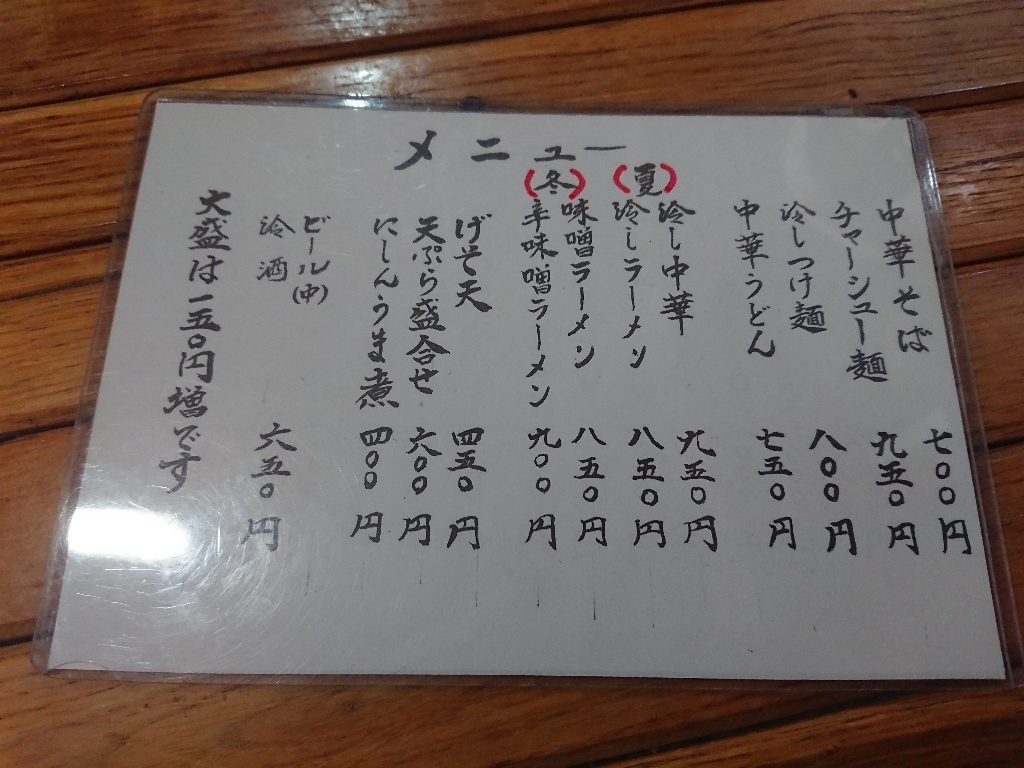 メニュー
中華そば 七〇〇円
チャーシュー麺 九五〇円
冷しつけ麺 八〇〇円
中華うどん 七五〇円
(夏)
冷し中華 九五〇円
冷しラーメン 八五〇円
(冬)
味噌ラーメン 八五〇円
辛味噌ラーメン 九〇〇円
げそ天 四五〇円
天ぷら盛合せ 六〇〇円
にしんうま煮 四〇〇円
ビール(中)
冷酒
六五〇円
大盛は一五〇円増です